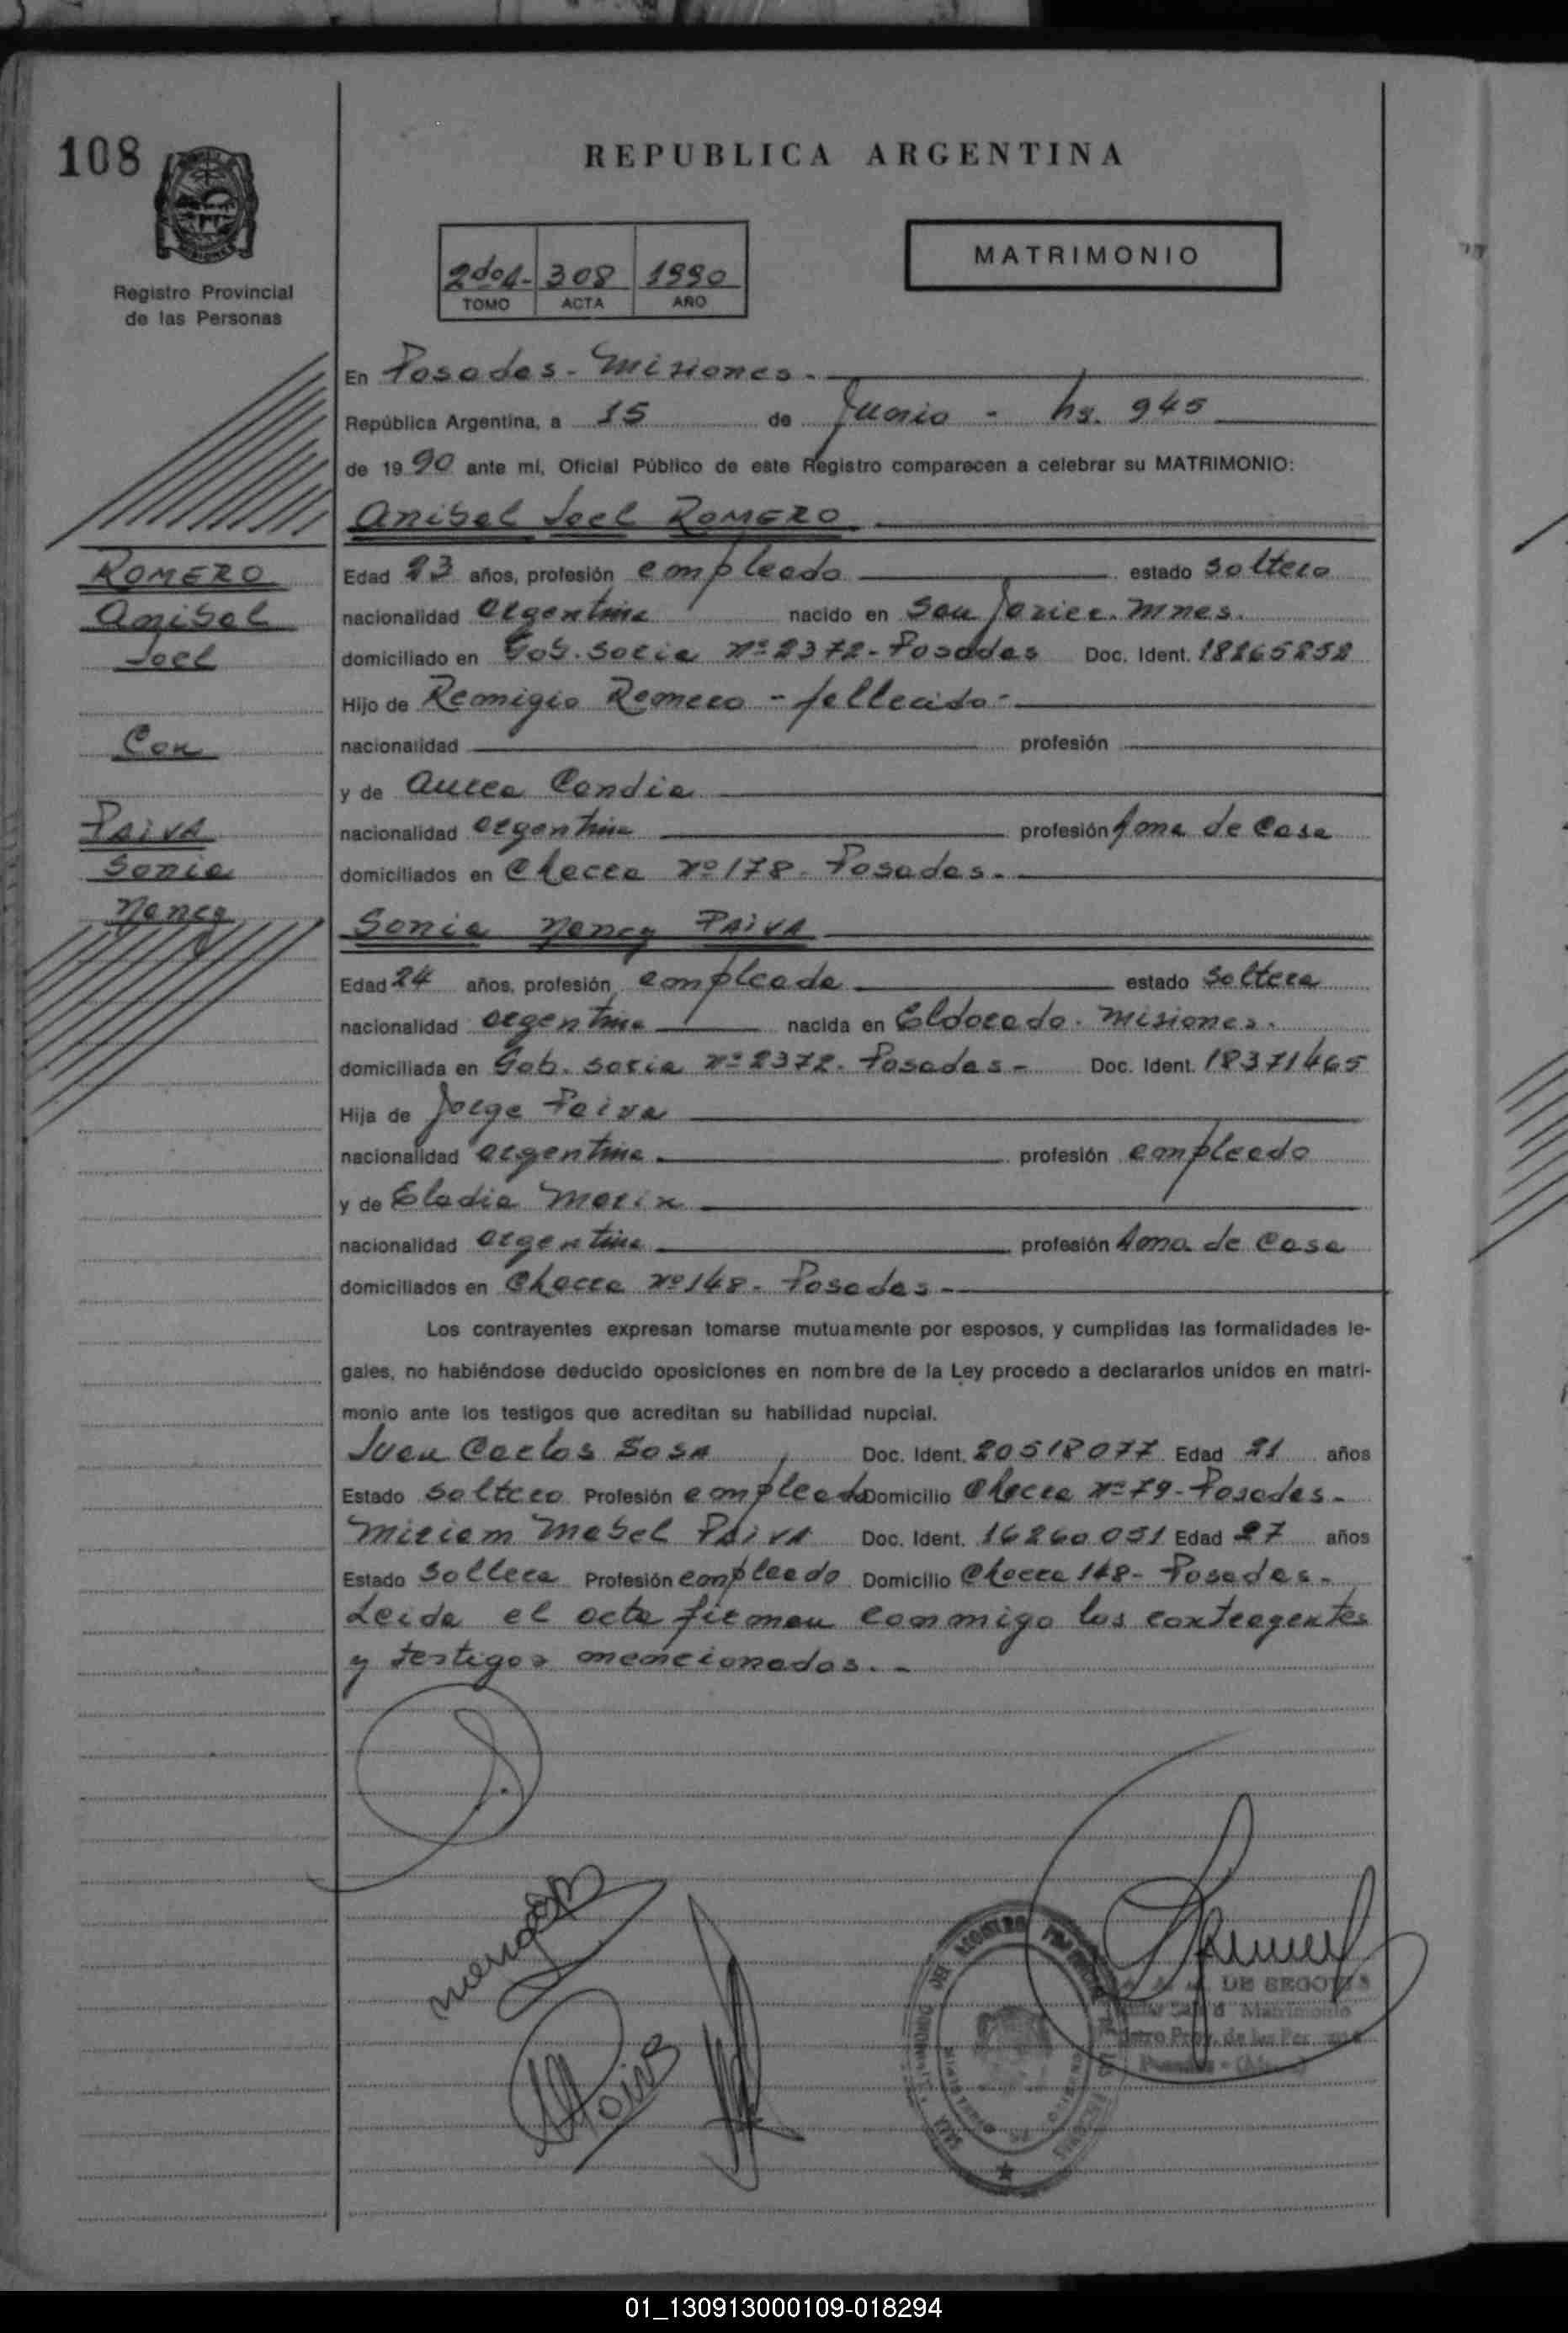 108
REPUBLICA ARGENTINA
MATRIMONIO
2do 1- 308 1990
TOMO ACTA AÑO
Registro Provincial
de las Personas
En Posadas - Misiones.-
República Argentina, a 15 de Junio - hs. 945
de 1990 ante mí, Oficial Público de este Registro comparecen a celebrar su MATRIMONIO:
Anibal Joel ROMERO
ROMERO
Anibal
Joel
Con
PAIVA
Sonia
Nancy
Edad 23 años, profesión empleado estado soltero
nacionalidad argentina nacido en San Javier. Mnes.
domiciliado en Gob. Soria Nº 2372 - Posadas Doc. Ident. 18265252
Hijo de Remigio Romero - fallecido -
nacionalidad profesión
y de Aurea Candia
nacionalidad argentina profesión Ama de Casa
domiciliados en Chacra Nº 178. Posadas.
Sonia Nancy PAIVA
Edad 24 años, profesión empleada estado soltera
nacionalidad argentina nacida en Eldorado. Misiones.
domiciliada en Gob. Soria Nº 2372. Posadas - Doc. Ident. 18371465
Hija de Jorge Paiva
nacionalidad argentina profesión empleado
y de Eladia Marin
nacionalidad argentina profesión Ama de Casa
domiciliados en Chacra Nº 148 - Posadas -
Los contrayentes expresan tomarse mutuamente por esposos, y cumplidas las formalidades le-
gales, no habiéndose deducido oposiciones en nombre de la Ley procedo a declararlos unidos en matri-
monio ante los testigos que acreditan su habilidad nupcial.
Juan Carlos SOSA Doc. Ident. 20518077 Edad 21 años
Estado soltero Profesión empleado Domicilio Chacra Nº 79 - Posadas -
Miriam Mabel PAIVA Doc. Ident. 16260051 Edad 27 años
Estado Soltera Profesión empleada Domicilio Chacra 148 - Posadas -
Leida el acta firman conmigo los contrayentes
y testigos mencionados. -
DE SEGOVIA
Matrimonio
Prov. de las Personas
01_130913000109-018294